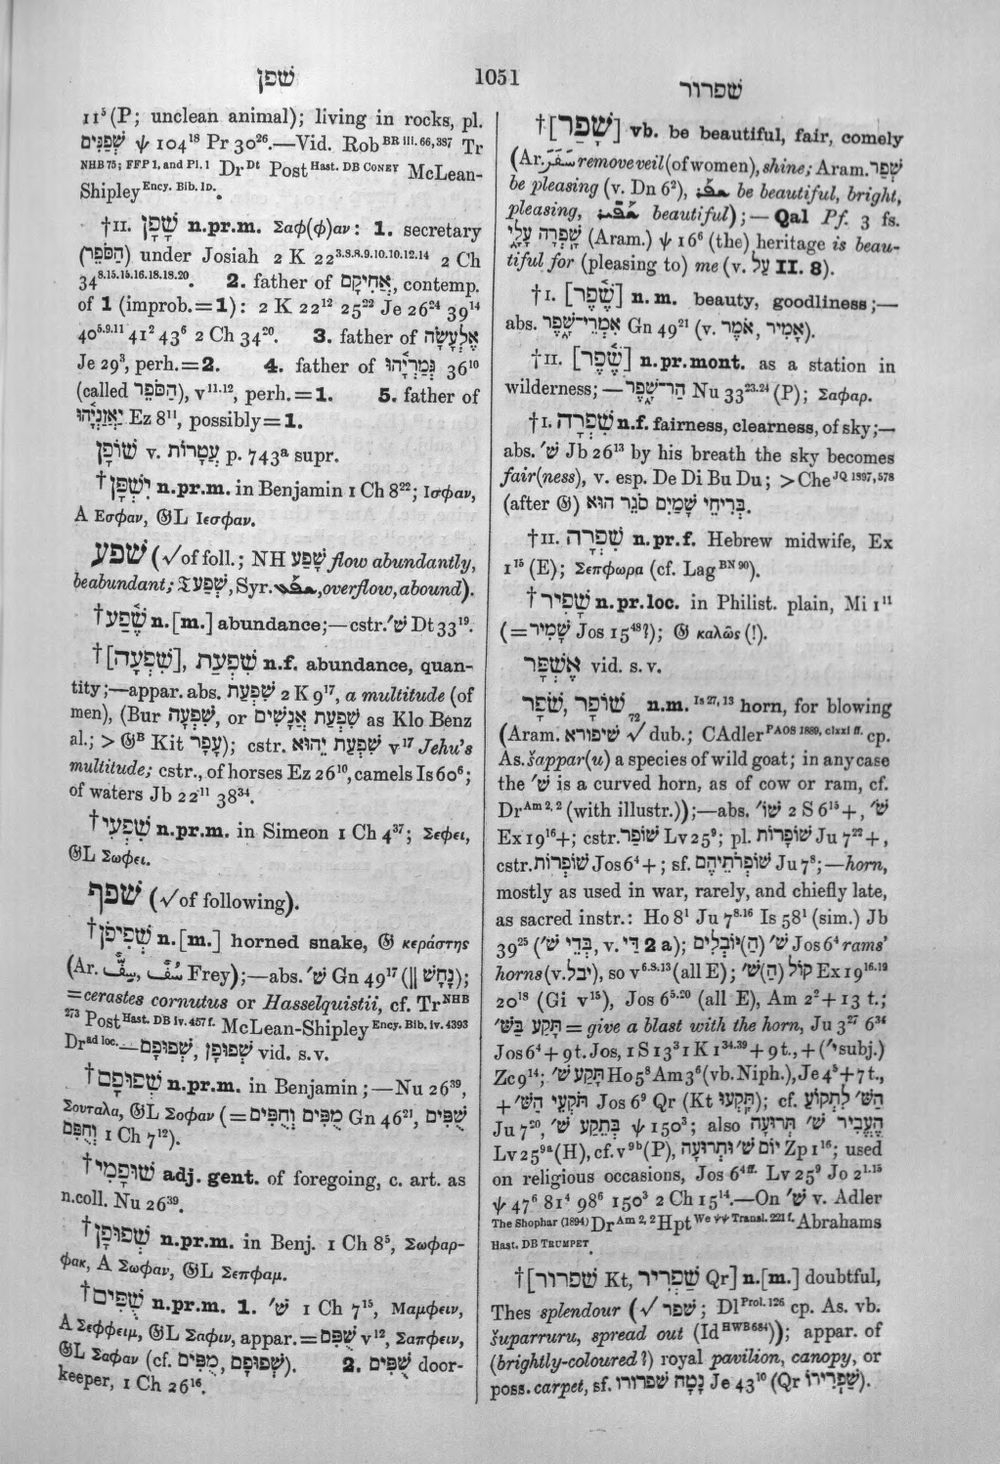 שפן
1051
שפרור
11⁵ (P; unclean animal); living in rocks, pl.
שְׁפַנִּים ψ 104¹⁸ Pr 30²⁶.—Vid. Rob BR iii. 66, 387 Tr
NHB 75; FFP 1, and Pl. 1 Dr Dt Post Hast. DB CONEY McLean-
Shipley Ency. Bib. ID.
†II. שָׁפָן n.pr.m. Σαφ(φ)αν: 1. secretary
(הַסֹּפֵר) under Josiah 2 K 22³·⁸·⁸·⁹·¹⁰·¹⁰·¹²·¹⁴ 2 Ch
34⁸·¹⁵·¹⁵·¹⁶·¹⁸·¹⁸·²⁰. 2. father of אֲחִיקָם, contemp.
of 1 (improb.=1): 2 K 22¹² 25²² Je 26²⁴ 39¹⁴
40⁵·⁹·¹¹ 41² 43⁶ 2 Ch 34²⁰. 3. father of אֶלְעָשָׂה
Je 29³, perh.=2. 4. father of גְּמַרְיָהוּ 36¹⁰
(called הַסֹּפֵר), v¹¹·¹², perh.=1. 5. father of
יַאֲזַנְיָהוּ Ez 8¹¹, possibly=1.
שׁוֹפָן v. עֲטָרוֹת p. 743ᵃ supr.
†יִשְׁפָּן n.pr.m. in Benjamin 1 Ch 8²²; Ισφαν,
A Εσφαν, 𝔊L Ιεσφαν.
שׁפע (√of foll.; NH שָׁפַע flow abundantly,
be abundant; 𝔗 שְׁפַע, Syr. ܫܦܥ, overflow, abound).
†שֶׁפַע n.[m.] abundance;—cstr. שׁ׳ Dt 33¹⁹.
†[שִׁפְעָה], שִׁפְעַת n.f. abundance, quan-
tity;—appar. abs. שִׁפְעַת 2 K 9¹⁷, a multitude (of
men), (Bur שִׁפְעָה, or שִׁפְעַת אֲנָשִׁים as Klo Benz
al.; > 𝔊ᴮ Kit עָפָר); cstr. שִׁפְעַת יֵהוּא v¹⁷ Jehu's
multitude; cstr., of horses Ez 26¹⁰, camels Is 60⁶;
of waters Jb 22¹¹ 38³⁴.
†שִׁפְעִי n.pr.m. in Simeon 1 Ch 4³⁷; Σεφει,
𝔊L Σωφει.
שׁפף (√of following).
†שְׁפִיפֹן n.[m.] horned snake, 𝔊 κεράστης
(Ar. سِفّ, سُفّ Frey);—abs. שׁ׳ Gn 49¹⁷ (‖ נָחָשׁ);
=cerastes cornutus or Hasselquistii, cf. Tr NHB
273 Post Hast. DB iv. 457 f. McLean-Shipley Ency. Bib. iv. 4393
Dr ad loc.—שְׁפוּפָם, שְׁפוּפָן vid. s.v.
†שְׁפוּפָם n.pr.m. in Benjamin;—Nu 26³⁹,
Σουταλα, 𝔊L Σοφαν (=מֻפִּים וְחֻפִּים Gn 46²¹, שֻׁפִּים
וְחֻפִּם 1 Ch 7¹²).
†שׁוּפָמִי adj. gent. of foregoing, c. art. as
n.coll. Nu 26³⁹.
†שְׁפוּפָן n.pr.m. in Benj. 1 Ch 8⁵, Σωφαρ-
φακ, A Σωφαν, 𝔊L Σεπφαμ.
†שֻׁפִּים n.pr.m. 1. שׁ׳ 1 Ch 7¹⁵, Μαμφειν,
A Σεφφειμ, 𝔊L Σαφιν, appar.=שֻׁפִּם v¹², Σαπφειν,
𝔊L Σαφαν (cf. מֻפִּים, שְׁפוּפָם). 2. שֻׁפִּים door-
keeper, 1 Ch 26¹⁶.
†[שָׁפַר] vb. be beautiful, fair, comely
(Ar. سَفَرَ remove veil (of women), shine; Aram. שְׁפַר
be pleasing (v. Dn 6²), ܫܦܪ be beautiful, bright,
pleasing, ܫܦܝܪ beautiful);—Qal Pf. 3 fs.
שָֽׁפְרָה עָלָי (Aram.) ψ 16⁶ (the) heritage is beau-
tiful for (pleasing to) me (v. עַל II. 8).
†I. [שֶׁפֶר] n.m. beauty, goodliness;—
abs. אִמְרֵי־שָׁפֶר Gn 49²¹ (v. אָמִיר, אֹמֶר).
†II. [שֶׁפֶר] n.pr.mont. as a station in
wilderness;—הַר־שָׁפֶר Nu 33²³·²⁴ (P); Σαφαρ.
†I. שִׁפְרָה n.f. fairness, clearness, of sky;—
abs. שׁ׳ Jb 26¹³ by his breath the sky becomes
fair(ness), v. esp. De Di Bu Du; >Che JQ 1897, 578
(after 𝔊) בְּרִיחֵי שָׁמַיִם סֹגֵר הוּא.
†II. שִׁפְרָה n.pr.f. Hebrew midwife, Ex
1¹⁵ (E); Σεπφωρα (cf. Lag BN 90).
†שָׁפִיר n.pr.loc. in Philist. plain, Mi 1¹¹
(=שָׁמִיר Jos 15⁴⁸?); 𝔊 καλῶς (!).
אֶשְׁפָּר vid. s.v.
שׁוֹפָר, שֹׁפָר 72 n.m. Is 27, 13 horn, for blowing
(Aram. שׁיפורא √ dub.; CAdler PAOS 1889, clxxi ff. cp.
As. šappar(u) a species of wild goat; in any case
the שׁ׳ is a curved horn, as of cow or ram, cf.
Dr Am 2, 2 (with illustr.));—abs. שׁוֹ׳ 2 S 6¹⁵+, שֹׁ׳
Ex 19¹⁶+; cstr. שׁוֹפַר Lv 25⁹; pl. שׁוֹפָרוֹת Ju 7²²+,
cstr. שׁוֹפְרוֹת Jos 6⁴+; sf. שׁוֹפְרֹתֵיהֶם Ju 7⁸;—horn,
mostly as used in war, rarely, and chiefly late,
as sacred instr.: Ho 8¹ Ju 7⁸·¹⁶ Is 58¹ (sim.) Jb
39²⁵ (בְּדֵי שׁ׳, v. דַּי 2 a); שׁ׳ (הַ)יּוֹבְלִים Jos 6⁴ rams'
horns (v. יבל), so v⁶·⁸·¹³ (all E); קוֹל (הַ)שּׁ׳ Ex 19¹⁶·¹⁹
20¹⁸ (Gi v¹⁵), Jos 6⁵·²⁰ (all E), Am 2²+13 t.;
תָּקַע בַּשּׁ׳ = give a blast with the horn, Ju 3²⁷ 6³⁴
Jos 6⁴+9 t. Jos, 1 S 13³ 1 K 1³⁴·³⁹+9 t., +(׳י subj.)
Zc 9¹⁴; תָּקַע שׁ׳ Ho 5⁸ Am 3⁶ (vb. Niph.), Je 4⁵+7 t.,
+תֹּקְעֵי הַשּׁ׳ Jos 6⁹ Qr (Kt תָּֽקְעוּ); cf. לִתְקוֹעַ הַשּׁ׳
Ju 7²⁰, בְּתֵקַע שׁ׳ ψ 150³; also הֶעֱבִיר שׁ׳ תְּרוּעָה
Lv 25⁹ᵃ (H), cf. v⁹ᵇ (P), יוֹם שׁ׳ וּתְרוּעָה Zp 1¹⁶; used
on religious occasions, Jos 6⁴ff. Lv 25⁹ Jo 2¹·¹⁵
ψ 47⁶ 81⁴ 98⁶ 150³ 2 Ch 15¹⁴.—On שׁ׳ v. Adler
The Shophar (1894) Dr Am 2, 2 Hpt We ψψ Transl. 221 f. Abrahams
Hast. DB TRUMPET.
†[שׁפרור Kt, שַׁפְרִיר Qr] n.[m.] doubtful,
Thes splendour (√ שׁפר; Dl Prol. 126 cp. As. vb.
šuparruru, spread out (Id HWB 684)); appar. of
(brightly-coloured?) royal pavilion, canopy, or
poss. carpet, sf. נָטָה שׁפרורו Je 43¹⁰ (Qr שַׁפְרִירוֹ).